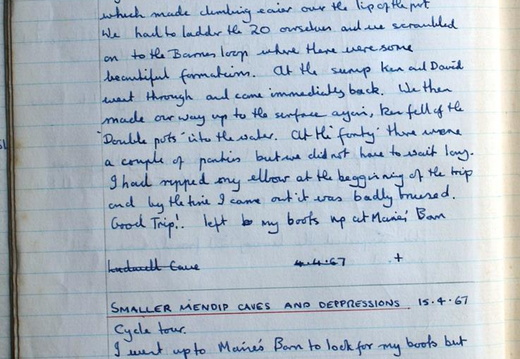 which made climbing easier over the lip of the pot
We had to ladder the 20 ourselves and we scrambled
on to the Barnes loop where there were some
beautiful formations. At the sump Ken and David
went through and came immediately back. We then
made our way up to the surface again, Ken fell of the
"Double pots" into the water. At the 'forty' there were
a couple of parties but we did not have to wait long.
I had ripped my elbow at the beggining of the trip
and by the time I came out it was badly bruised.
Good Trip!. left my boots up at Maine's Barn
Ludwell Cave 4.4.67 +
SMALLER MENDIP CAVES AND DEPPRESSIONS 15.4.67
Cycle tour.
I went up to Maine's Barn to look for my boots but